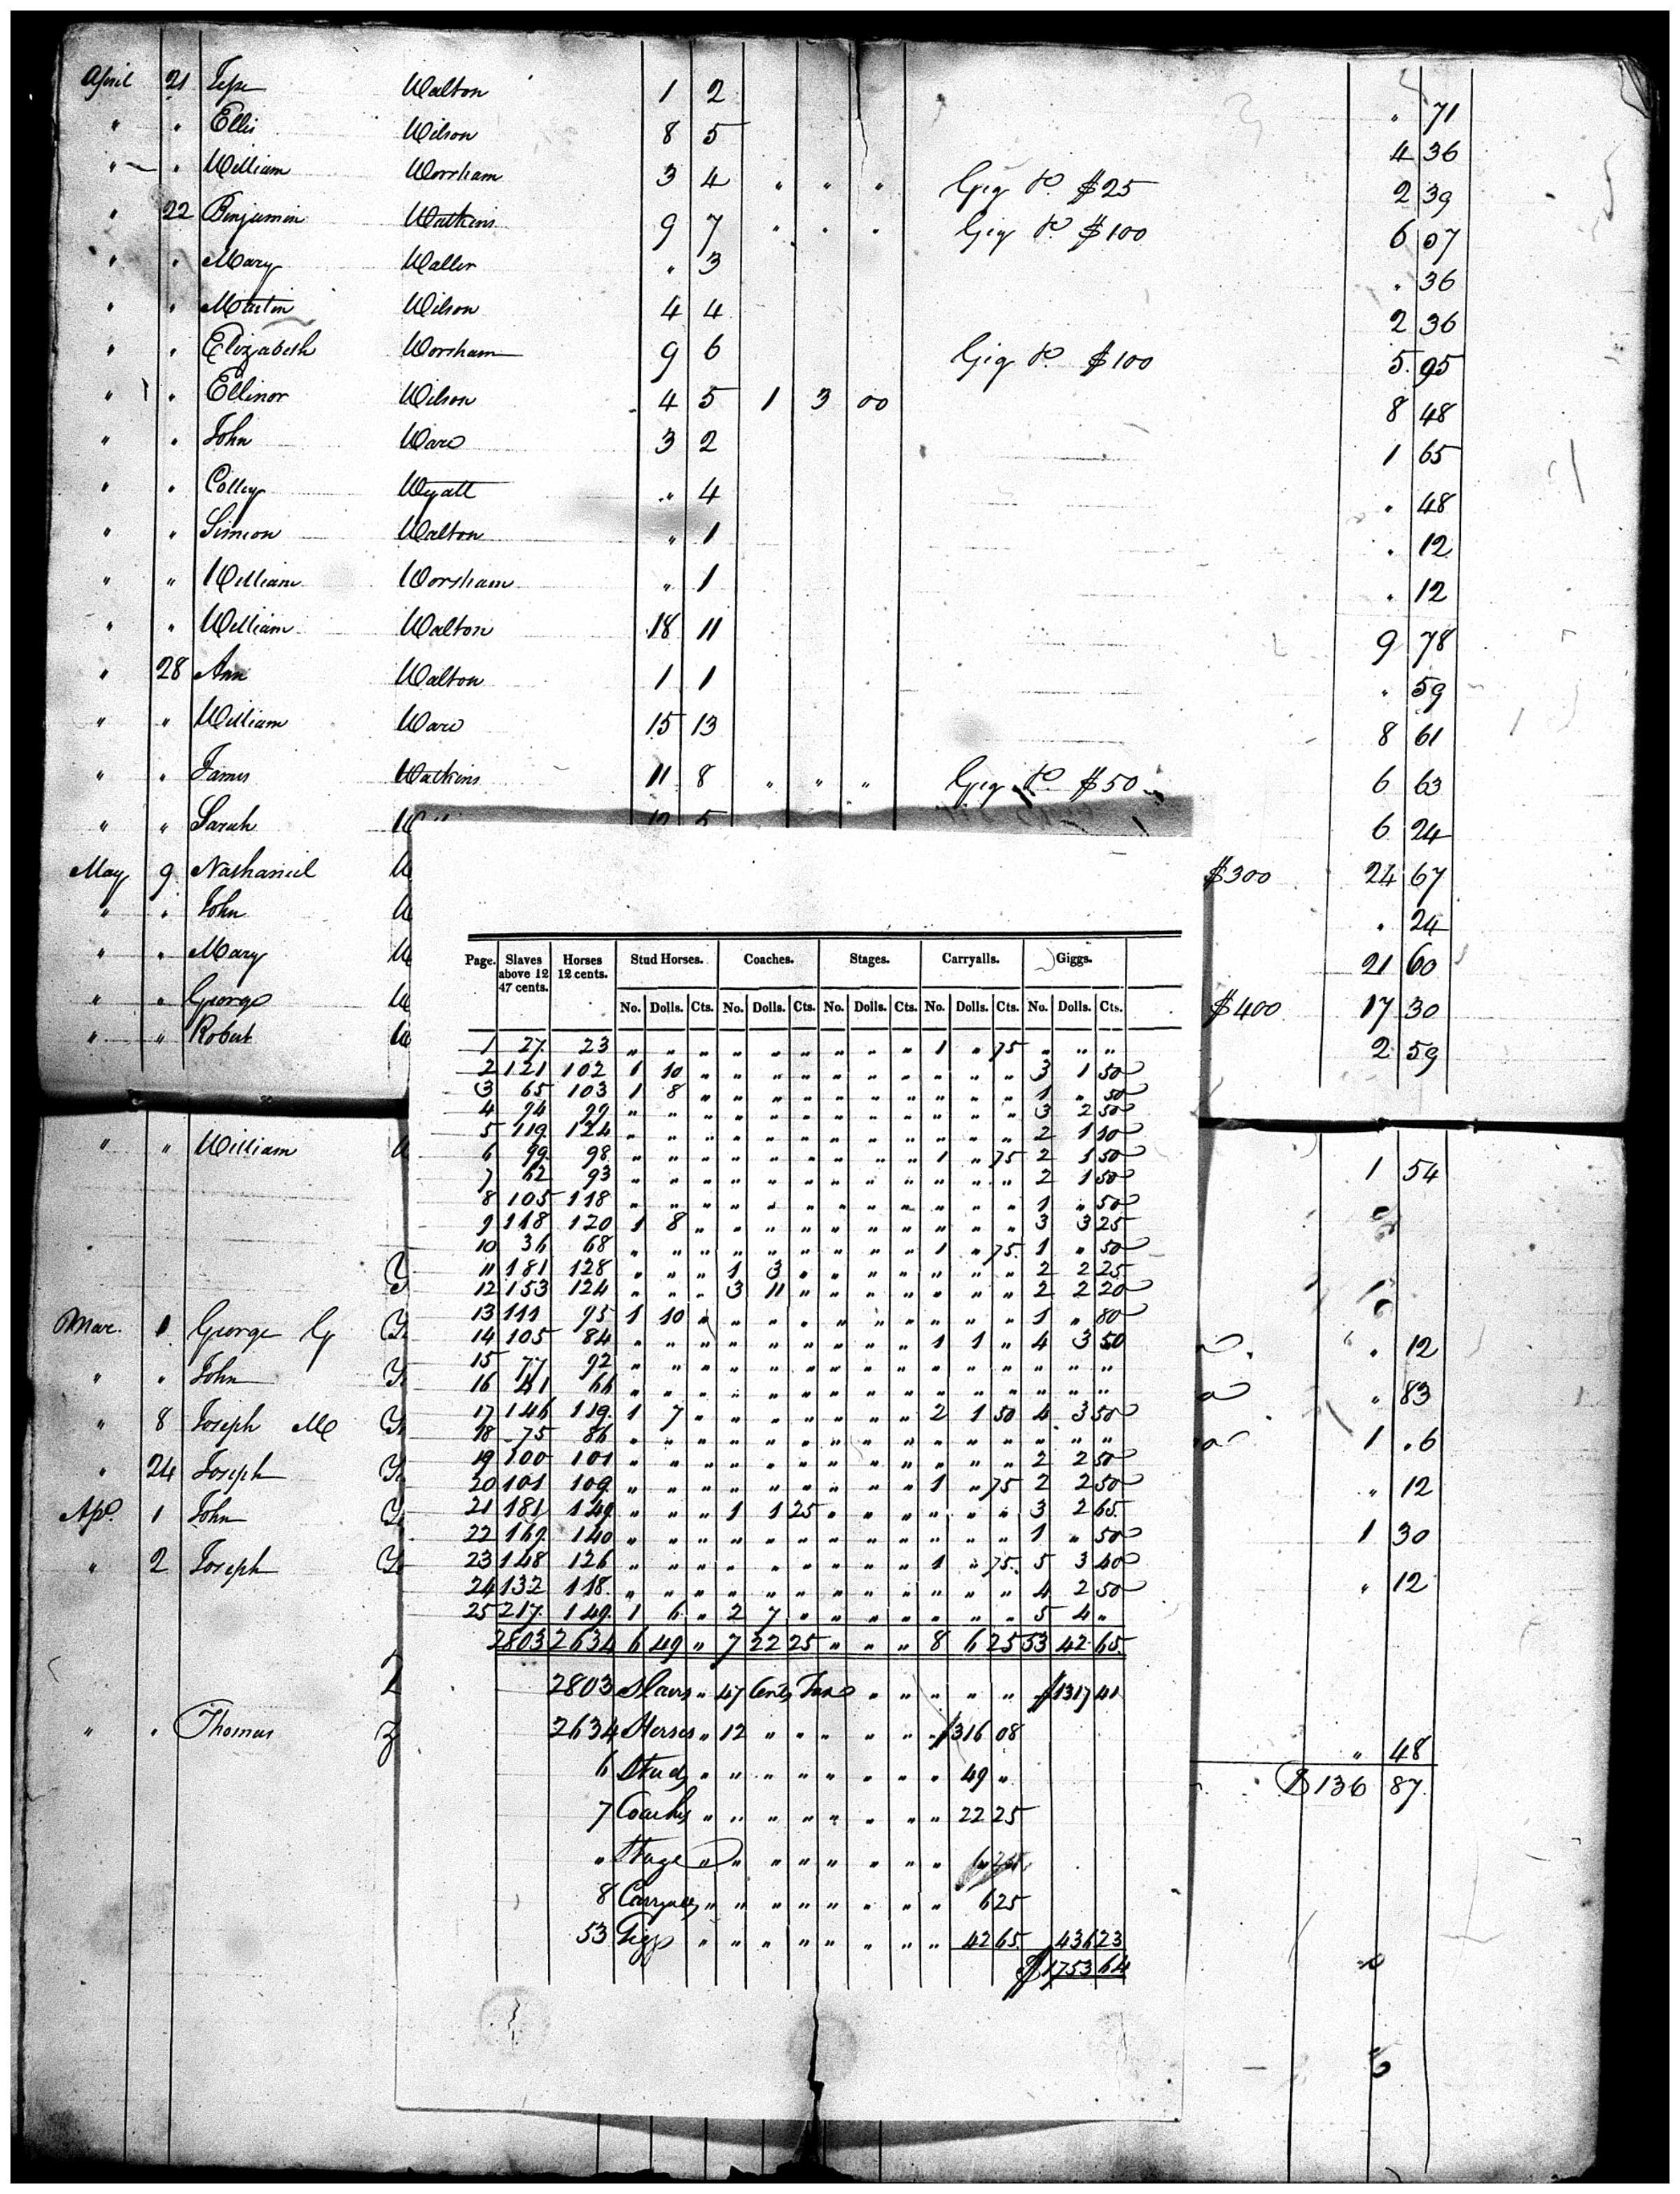 April 21 Walton 1 2 " 71
" " Ellis Wilson 8 5 4 36
" " William Worsham 3 4 " " " Gig Do. $25 2 39
" 22 Benjamin Watkins 9 7 " " " Gig Do. $100 6 07
" " Mary Waller " 3 " 36
" " Martin Wilson 4 4 2 36
" " Elizabeth Worsham 9 6 Gig Do. $100 5 95
" " Ellinor Wilson 4 5 1 3 00 8 48
" " John Ware 3 2 1 65
" " Colley Wyatt " 4 " 48
" " Simeon Walton " 1 " 12
" " William Worsham " 1 " 12
" " William Walton 18 11 9 78
" 28 Ann Walton 1 1 " 59
" " William Ware 15 13 8 61
" " James Watkins 11 8 " " " Gig Do. $50 6 63
" " Sarah W 12 5 6 24
May 9 Nathaniel W $300 24 67
" " John W " 24
" " Mary W 21 60
" " George W $400 17 30
" " Robert W 2 59
" " William 1 54
Mar. 1 George G Y " 12
" " John Y " 83
" 8 Joseph M Y 1 "6
" 24 Joseph Y " 12
Apl. 1 John Y 1 30
" 2 Joseph Y " 12
Z
" " Thomas Z " 48
$136 87
Page. Slaves above 12 47 cents. Horses 12 cents. Stud Horses. Coaches. Stages. Carryalls. Giggs.
No. Dolls. Cts. No. Dolls. Cts. No. Dolls. Cts. No. Dolls. Cts. No. Dolls. Cts.
1 27 23 " " " " " " " " " 1 " 75 " " "
2 121 102 1 10 " " " " " " " " " " 3 1 50
3 65 103 1 8 " " " " " " " " " " 1 " 50
4 94 99 " " " " " " " " " " " " 3 2 50
5 119 124 " " " " " " " " " " " " 2 1 50
6 99 98 " " " " " " " " " 1 " 75 2 1 50
7 62 93 " " " " " " " " " " " " 2 1 50
8 105 118 " " " " " " " " " " " " 1 " 50
9 118 120 1 8 " " " " " " " " " " 3 3 25
10 36 68 " " " " " " " " " 1 " 75 1 " 50
11 181 128 " " " 1 3 " " " " " " " 2 2 25
12 153 124 " " " 3 11 " " " " " " " 2 2 20
13 111 95 1 10 " " " " " " " " " " 1 " 80
14 105 84 " " " " " " " " " 1 1 " 4 3 50
15 77 92 " " " " " " " " " " " " " " "
16 41 66 " " " " " " " " " " " " " " "
17 146 119 1 7 " " " " " " " 2 1 50 4 3 50
18 75 86 " " " " " " " " " " " " " " "
19 100 101 " " " " " " " " " " " " 2 2 50
20 101 109 " " " " " " " " " 1 " 75 2 2 50
21 181 149 " " " 1 1 25 " " " " " " 3 2 65
22 169 140 " " " " " " " " " " " " 1 " 50
23 148 126 " " " " " " " " " 1 " 75 5 3 40
24 132 118 " " " " " " " " " " " " 4 2 50
25 217 149 1 6 " 2 7 " " " " " " " 5 4 "
2803 2634 6 49 " 7 22 25 " " " 8 6 25 53 42 65
2803 Slaves " 47 Cents Tax " " " " " $1317 41
2634 Horses " 12 " " " " " " $316 08
6 Studs " " " " " " " " " 49 "
7 Coaches " " " " " " " " 22 25
" Stage " " " " " " " "
8 Carryalls " " " " " " " " 6 25
53 Gigs " " " " " " " " " 42 65 436 23
$1753 64